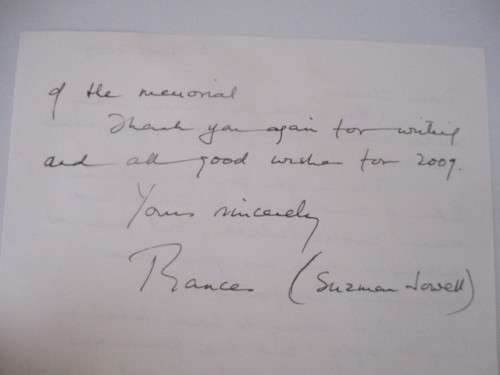 of the memorial
Thank you again for writing
and all good wishes for 2009.
Yours sincerely
Frances (Suzman Jowell)